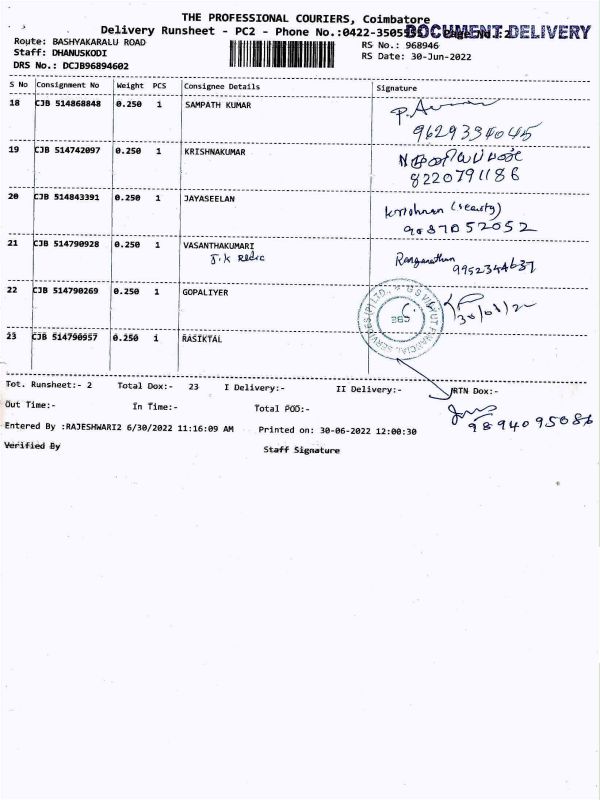 THE PROFESSIONAL COURIERS, Coimbatore
Delivery Runsheet - PC2 - Phone No.:0422-3505 Page No.:2
DOCUMENT DELIVERY
Route: BASHYAKARALU ROAD
RS No.: 968946
Staff: DHANUSKODI
RS Date: 30-Jun-2022
DRS No.: DCJB96894602
S No Consignment No Weight PCS Consignee Details Signature
18 CJB 514868848 0.250 1 SAMPATH KUMAR
9629334045
19 CJB 514742097 0.250 1 KRISHNAKUMAR
8220791186
20 CJB 514843391 0.250 1 JAYASEELAN
9087052052
21 CJB 514790928 0.250 1 VASANTHAKUMARI
Ranganathan
9952344637
22 CJB 514790269 0.250 1 GOPALIYER
30/6/22
23 CJB 514790957 0.250 1 RASIKTAL
Tot. Runsheet:- 2 Total Dox:- 23 I Delivery:- II Delivery:- RTN Dox:-
Out Time:- In Time:- Total POD:-
9894095086
Entered By :RAJESHWARI2 6/30/2022 11:16:09 AM Printed on: 30-06-2022 12:00:30
Verified By Staff Signature